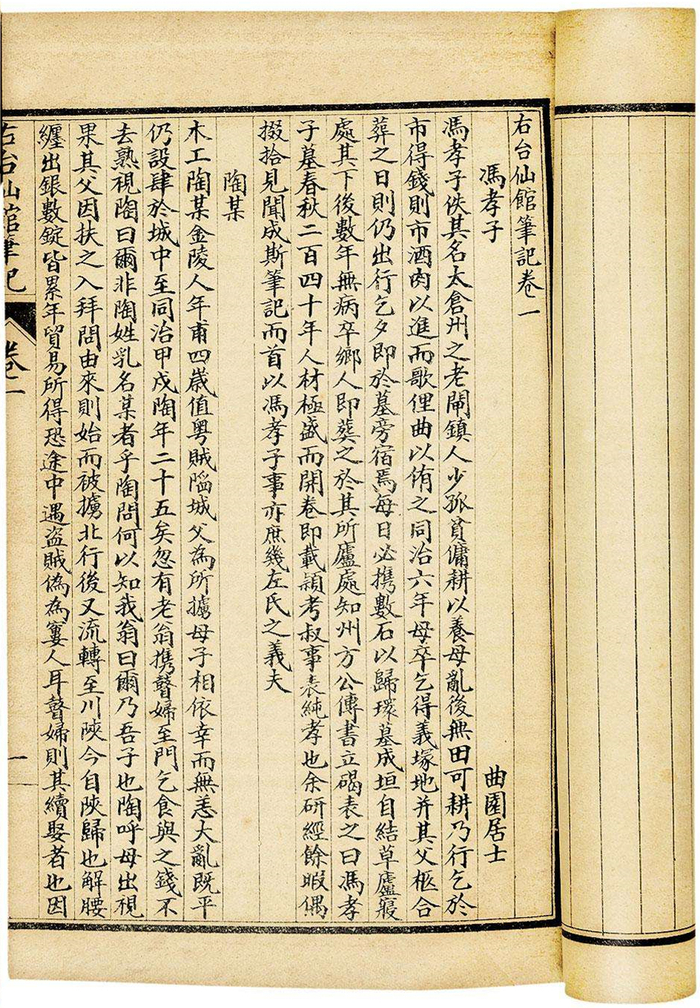 右台仙館筆記卷一
馮孝子 曲園居士
馮孝子佚其名太倉州之老閘鎮人少孤貧傭耕以養母亂後無田可耕乃行乞於
市得錢則市酒肉以進而歌俚曲以侑之同治六年母卒乞得義塚地并其父柩合
葬之日則仍出行乞夕即於墓旁宿焉每日必攜數石以歸環墓成垣自結草廬寢
處其下後數年無病卒鄉人即葬之於其所廬處知州方公傳書立碣表之曰馮孝
子墓春秋二百四十年人材極盛而開卷即載潁考叔事表純孝也余研經餘暇偶
掇拾見聞成斯筆記而首以馮孝子事亦庶幾左氏之義夫
陶某
木工陶某金陵人年甫四歲值粵賊陷城父為所擄母子相依幸而無恙大亂既平
仍設肆於城中至同治甲戌陶年二十五矣忽有老翁攜瞽婦至門乞食與之錢不
去熟視陶曰爾非陶姓乳名某者乎陶問何以知我翁曰爾乃吾子也陶呼母出視
果其父因扶之入拜問由來則始而被擄北行後又流轉至川陝今自陝歸也解腰
纏出銀數錠皆累年貿易所得恐途中遇盜賊偽為窶人耳瞽婦則其續娶者也因
右台仙館筆記 卷一 一